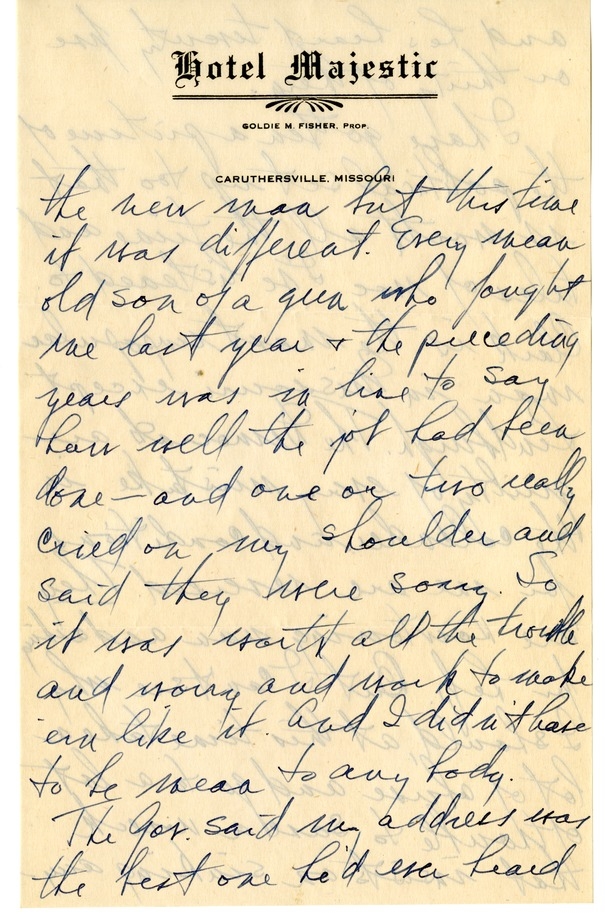 Hotel Majestic
GOLDIE M. FISHER, PROP.
CARUTHERSVILLE, MISSOURI
the new man but this time
it was different. Every mean
old son of a gun who fought
me last year & the preceding
years was in line to say
how well the job had been
done—and one or two really
cried on my shoulder and
said they were sorry. So
it was worth all the trouble
and worry and work to make
'em like it. And I didn't have
to be mean to any body.
The Gov. said my address was
the best one he'd ever heard